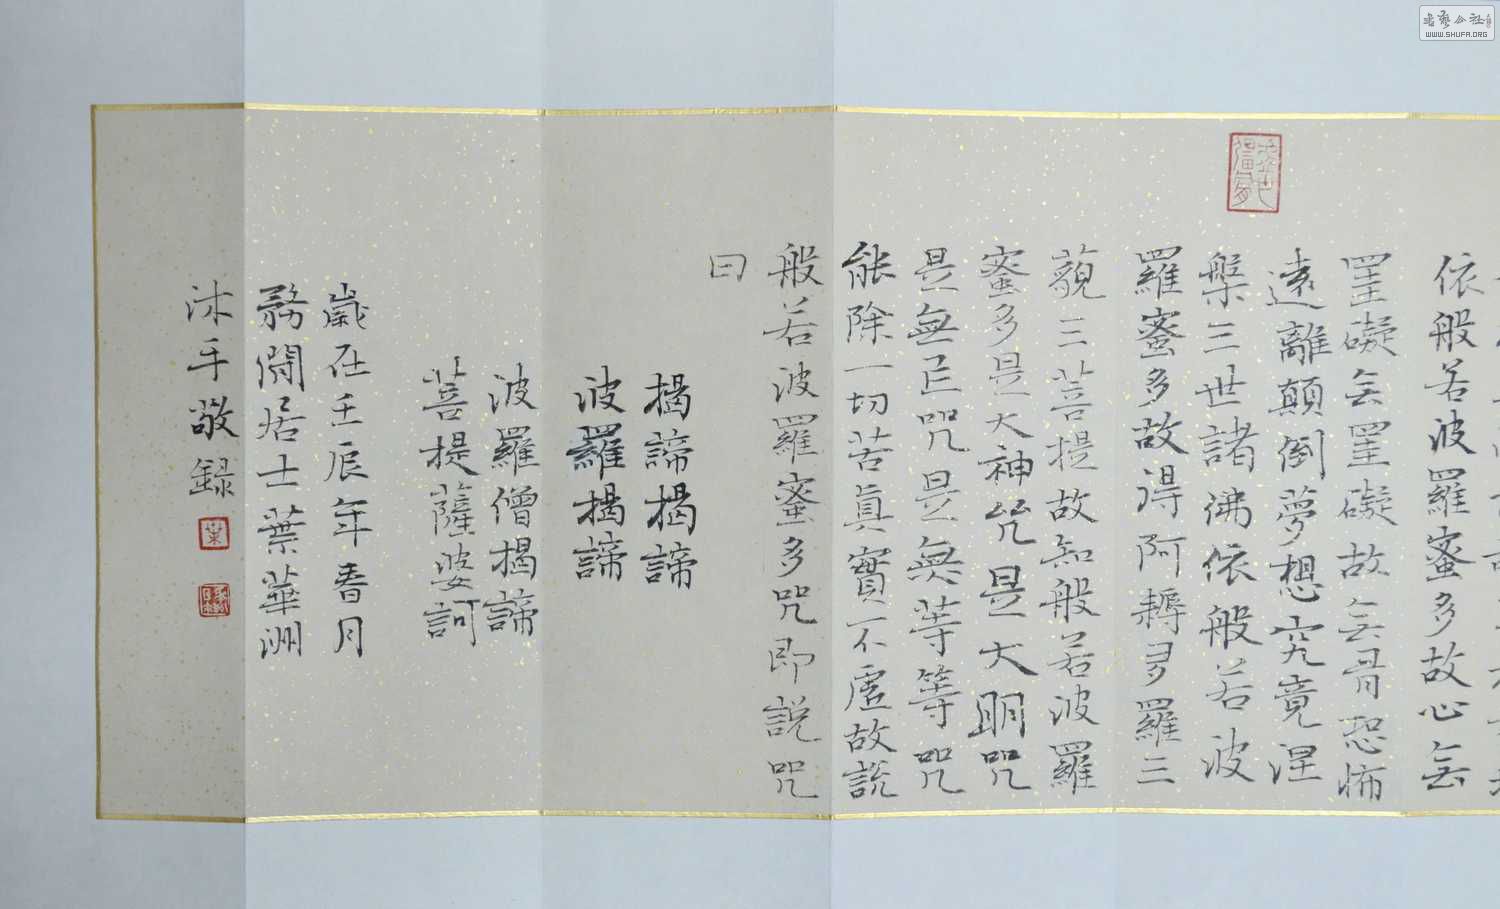 依般若波羅蜜多故心無
罣礙無罣礙故無有恐怖
遠離顛倒夢想究竟涅
槃三世諸佛依般若波
羅蜜多故得阿耨多羅三
藐三菩提故知般若波羅
蜜多是大神咒是大明咒
是無上咒是無等等咒
能除一切苦真實不虛故說
般若波羅蜜多咒即說咒
曰
揭諦揭諦
波羅揭諦
波羅僧揭諦
菩提薩婆訶
歲在壬辰年春月
務閑居士葉華洲
沐手敬録
葉
書藝公社
WWW.SHUFA.ORG